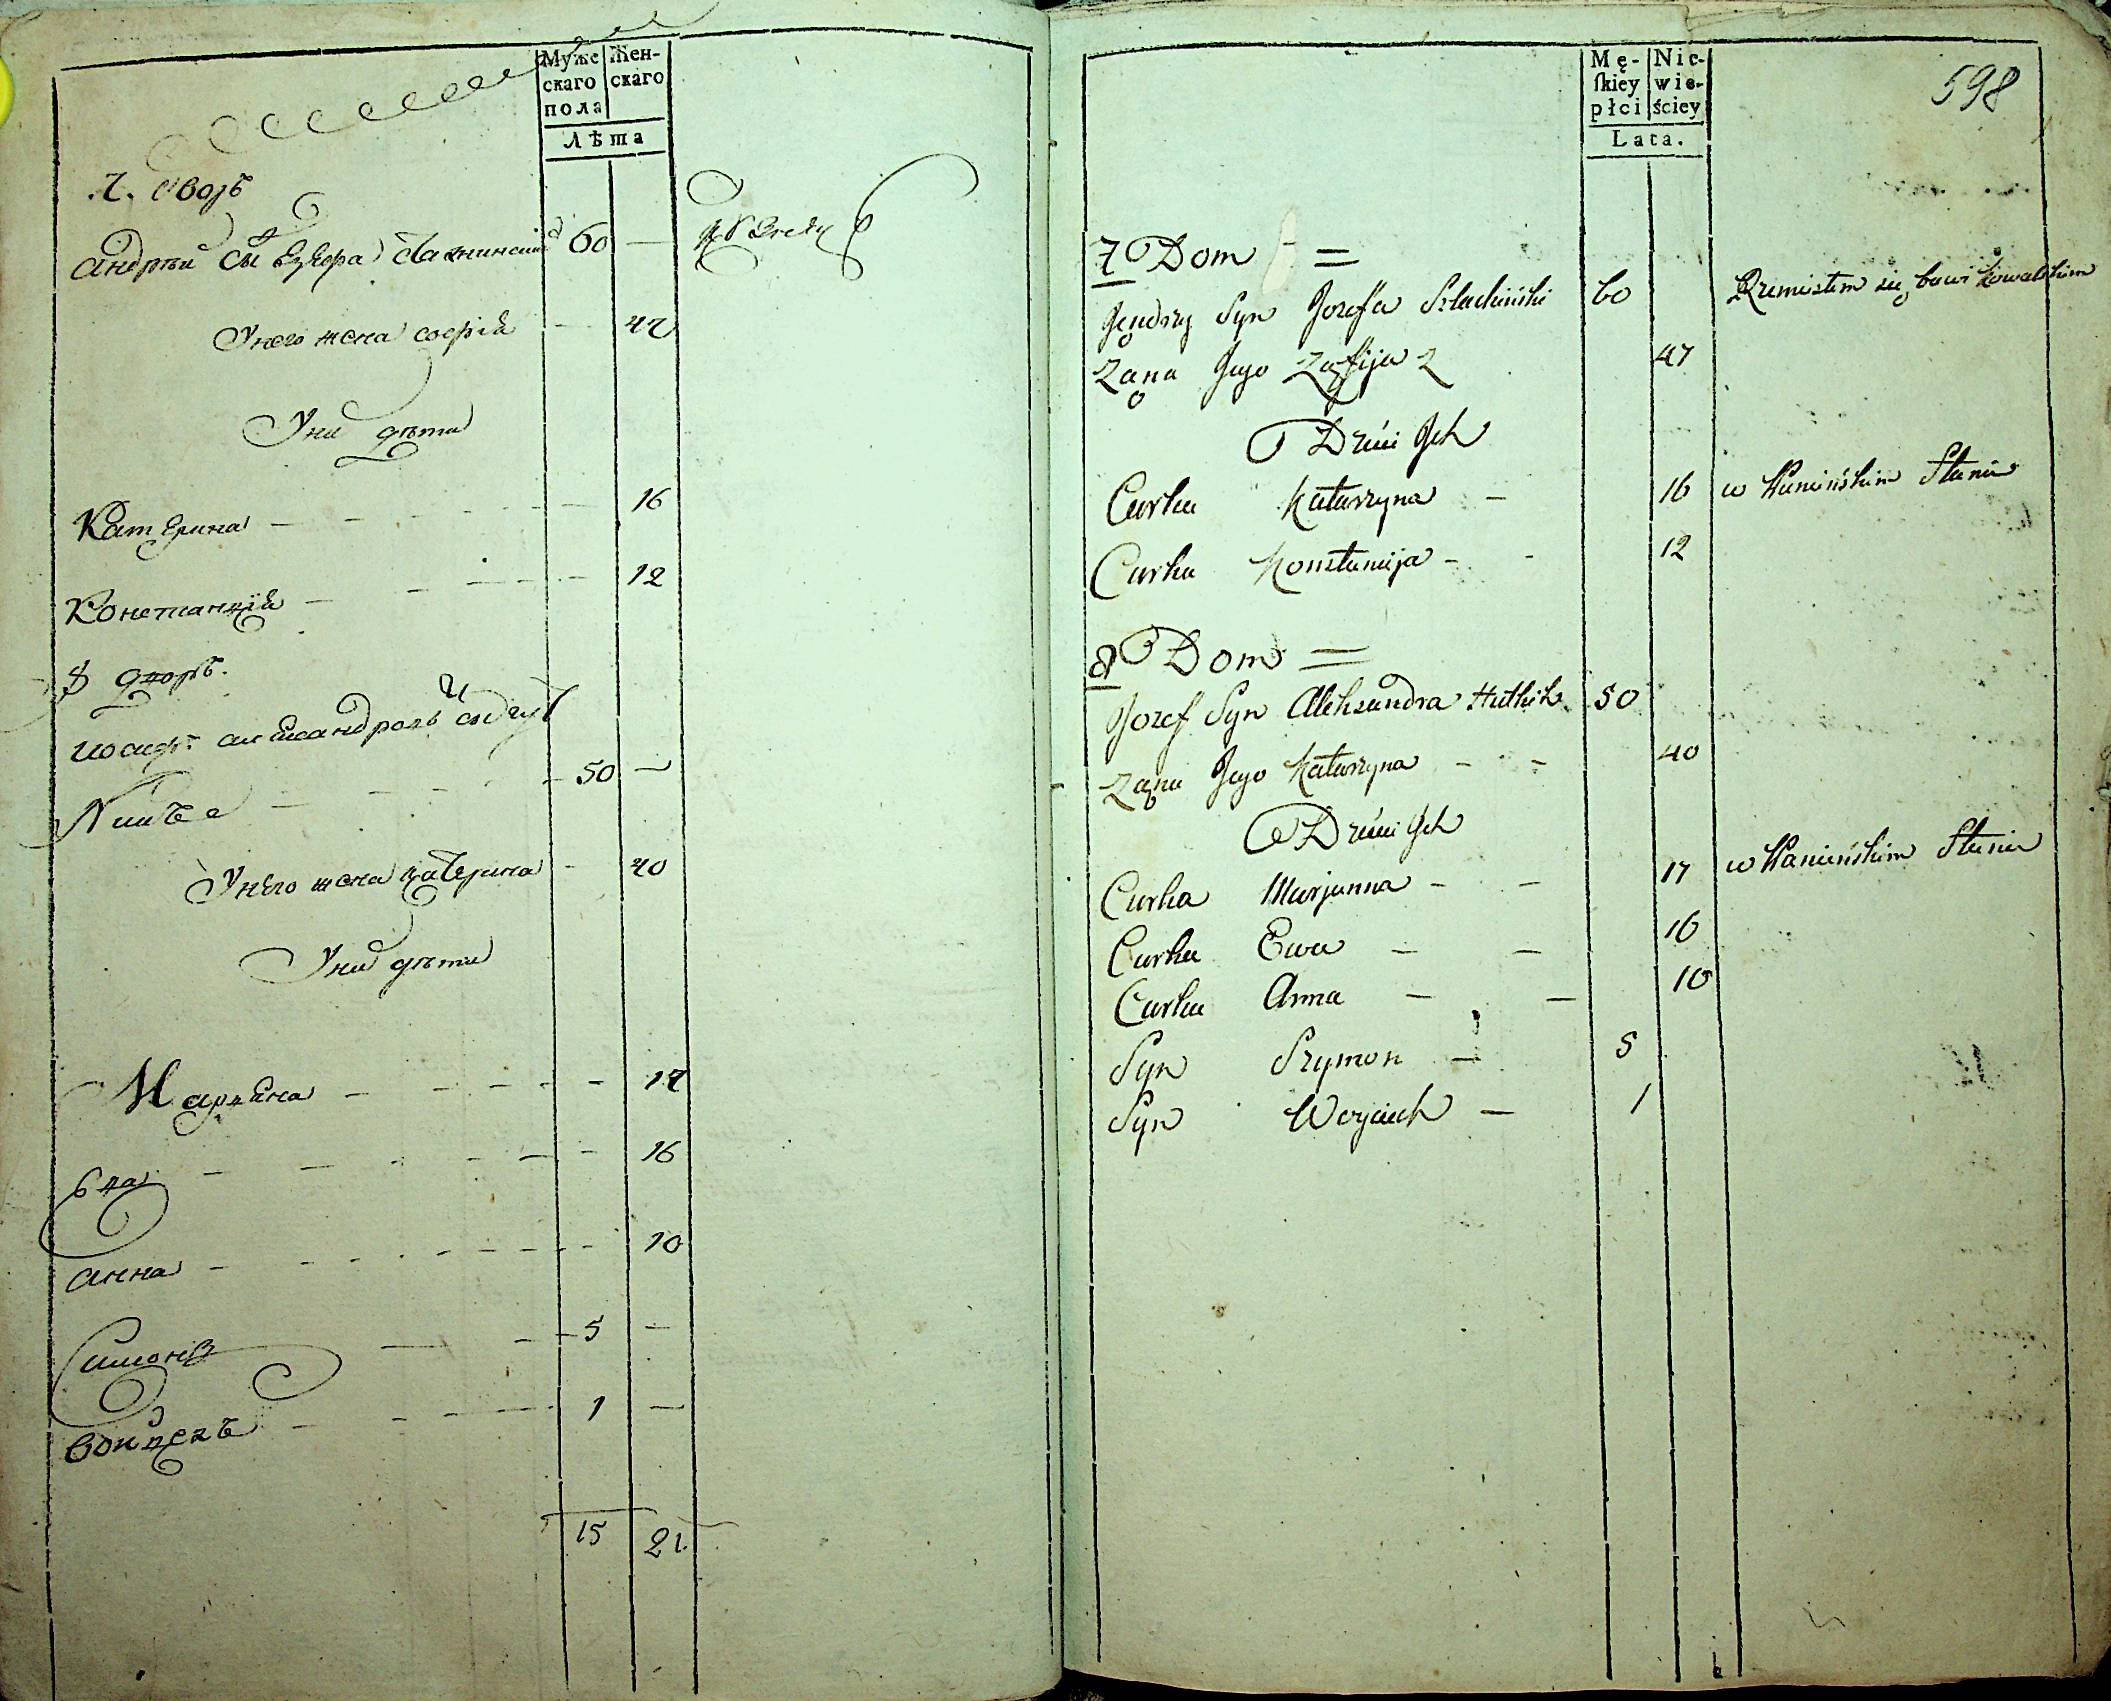 Муже
скаго
пола
Жен-
скаго
Лѣта
7. дворъ
Андрей 60 —
У него жена софія — 47
У ни дѣти
Катерина — 16
Констанція — 12
8 дворъ.
александровъ
50 —
У него жена катерина — 40
У ни дѣти
Марiана — 17
Ева — 16
Анна — 10
Симонъ — 5 —
Войцехъ — 1 —
15 21
Mę-
skiey
płci
Nie-
wie-
ściey
Lata.
598
7 Dom =
Jędrzy Syn Jozefa 60 Rzemiestem się bawi kowalskim
Ząna Jego Zofija 47
Dzieci Jch
Curka Katarzyna — 16 w Panieńskim Stanie
Curka Konstancija — 12
8 Dom =
Jozef Syn Aleksandra 50
Ząna Jego Katarzyna — 40
Dzieci Jch
Curka Marjanna — 17 w Panieńskim Stanie
Curka Ewa — 16
Curka Anna — 10
Syn Szymon — 5
Syn Woyciech — 1